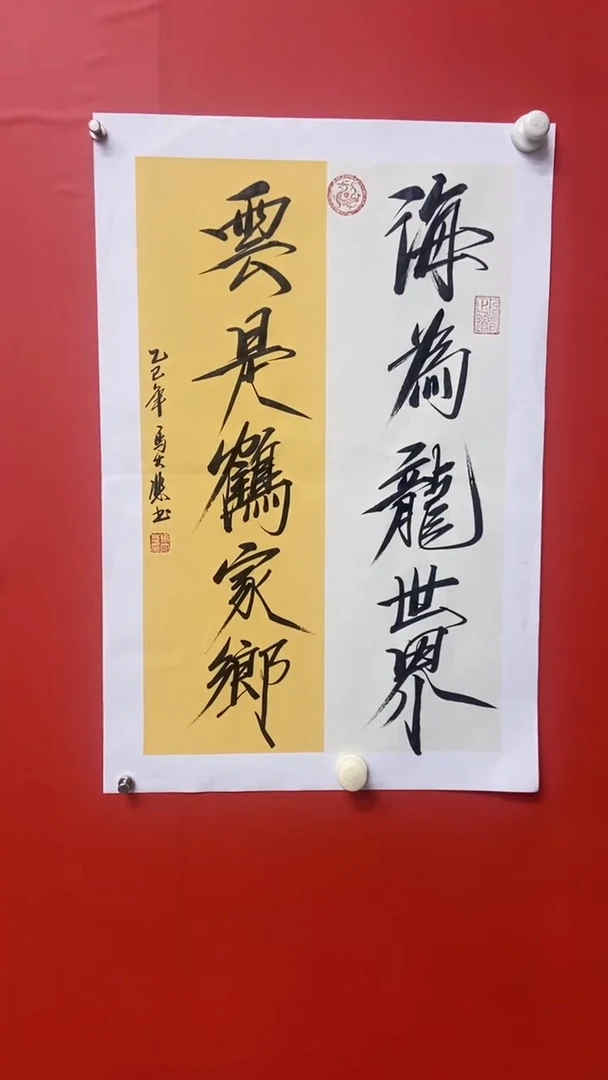 海為龍世界
雲是鶴家鄉
乙巳年馬大悲书